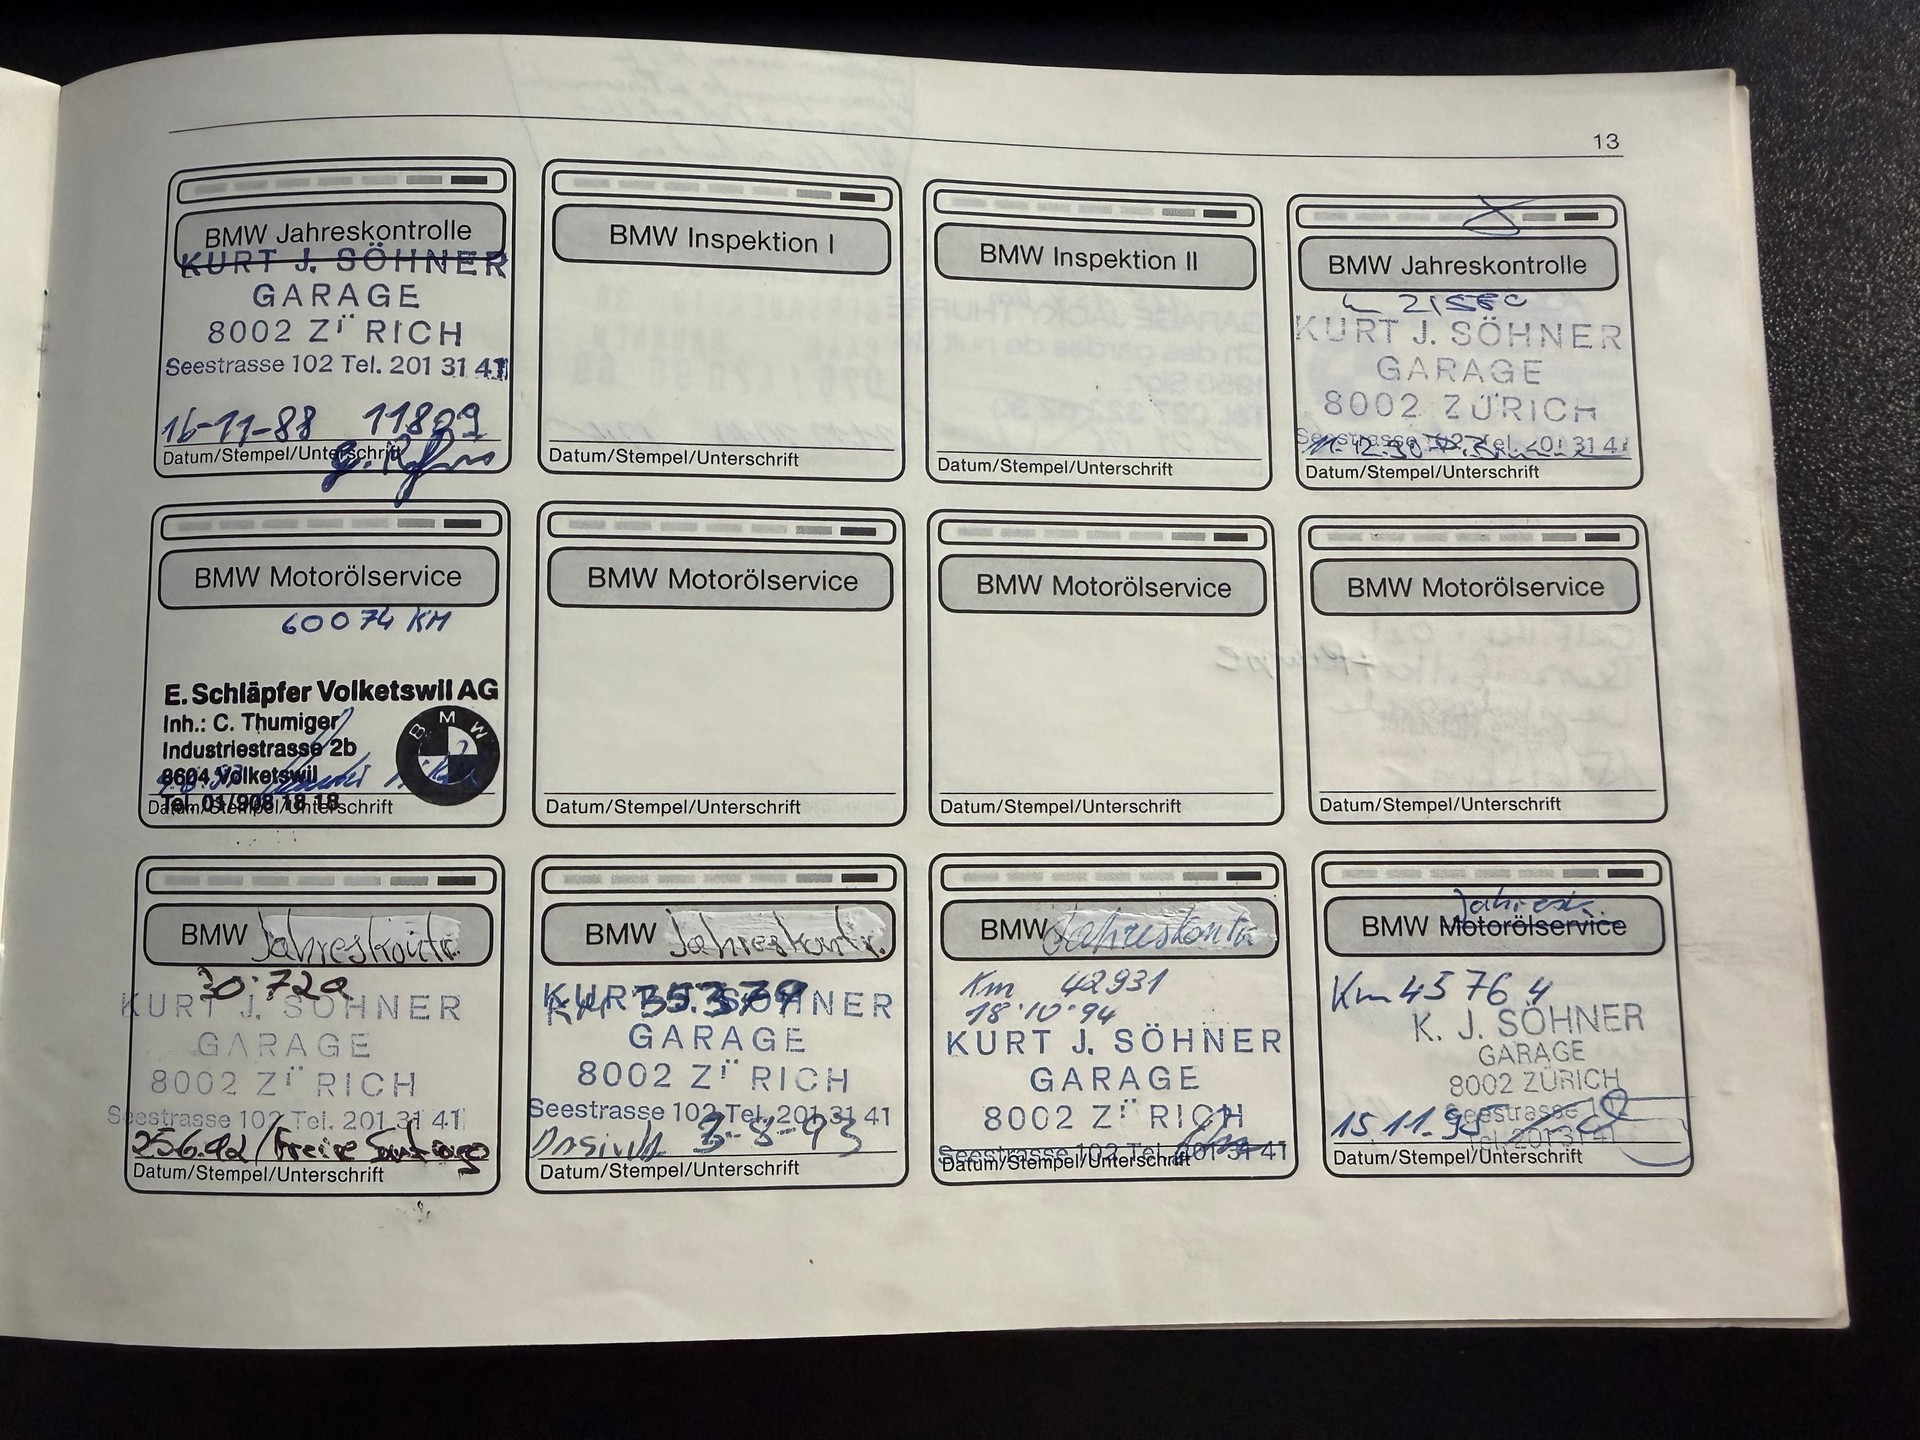 13
BMW Jahreskontrolle
KURT J. SÖHNER
GARAGE
8002 Z¨RICH
Seestrasse 102 Tel. 201 31 41
16-11-88 11809
Datum/Stempel/Unterschrift
BMW Inspektion I
Datum/Stempel/Unterschrift
BMW Inspektion II
Datum/Stempel/Unterschrift
BMW Jahreskontrolle
KURT J. SÖHNER
GARAGE
8002 ZÜRICH
Seestrasse 102 Tel. 201 31 41
11.12.90
Datum/Stempel/Unterschrift
BMW Motorölservice
60074 KM
E. Schläpfer Volketswil AG
Inh.: C. Thumiger
Industriestrasse 2b
8604 Volketswil
Tel. 01/908 18 18
BMW
Datum/Stempel/Unterschrift
BMW Motorölservice
Datum/Stempel/Unterschrift
BMW Motorölservice
Datum/Stempel/Unterschrift
BMW Motorölservice
Datum/Stempel/Unterschrift
BMW Jahreskontr.
30.720
KURT J. SÖHNER
GARAGE
8002 Z¨RICH
Seestrasse 102 Tel. 201 31 41
25.6.92 / Freire Santiago
Datum/Stempel/Unterschrift
BMW Jahreskontr.
KURT J. SÖHNER
KM 35379
GARAGE
8002 Z¨RICH
Seestrasse 102 Tel. 201 31 41
3-8-93
Datum/Stempel/Unterschrift
BMW Jahreskontr.
Km 42931
18.10.94
KURT J. SÖHNER
GARAGE
8002 Z¨RICH
Seestrasse 102 Tel. 201 31 41
Datum/Stempel/Unterschrift
Jahresk.
BMW Motorölservice
Km 45764
K. J. SÖHNER
GARAGE
8002 ZÜRICH
Seestrasse 102
Tel. 201 31 41
15.11.95
Datum/Stempel/Unterschrift